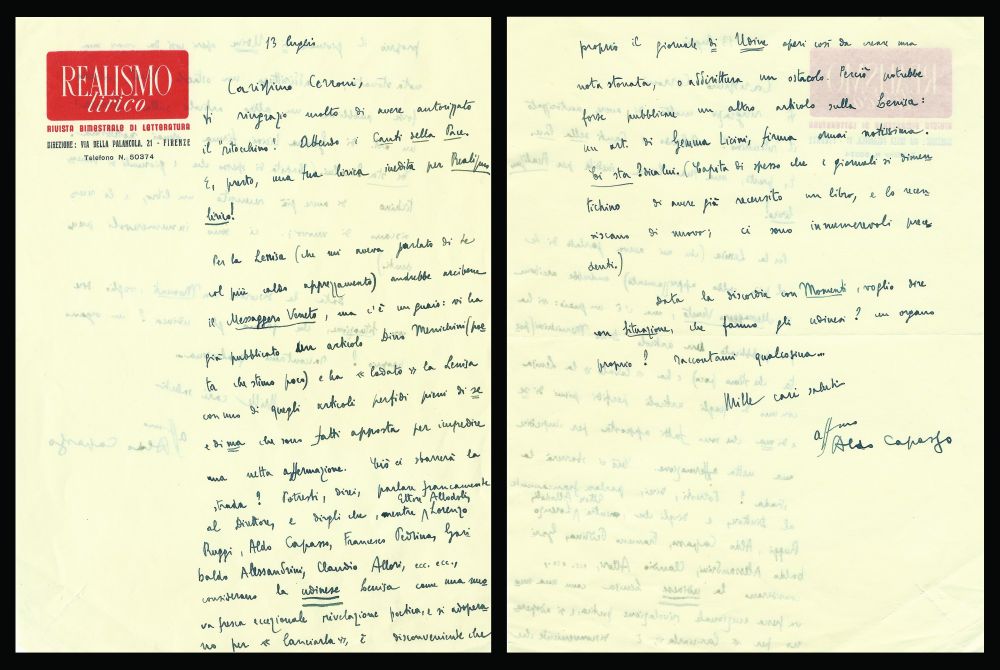 13 luglio
REALISMO
lirico
RIVISTA BIMESTRALE DI LETTERATURA
DIREZIONE: VIA DELLA PALANCOLA, 21 - FIRENZE
Telefono N. 50374
Carissimo Cerroni,
ti ringrazio molto di avere autorizzato
il "stocchino". Attendo i Canti della Pace.
E, presto, una tua lirica inedita per Realismo
lirico!
Per la Lenisa (che mi aveva parlato di te
col più caldo apprezzamento) andrebbe arcibene
il Messaggero Veneto, ma c'è un guaio: vi ha
già pubblicato un articolo Dino Menichini (poe
ta che stimo poco) e ha «lodato» la Lenisa
con uno di quegli articoli perfidi pieni di se
e di ma che sono fatti apposta per impedire
una netta affermazione. Ciò ci sbarrerà la
strada? Potresti, direi, parlare francamente
al Direttore, e dirgli che, mentre Ettore Allodoli, Lorenzo
Ruggi, Aldo Capasso, Francesco Pedrina, Gari
baldo Alessandrini, Claudio Allori, ecc. ecc.,
considerano la udinese Lenisa come una nuo
va fresca eccezionale rivelazione poetica, e si adopera
no per «lanciarla», è disconveniente che
proprio il giornale di Udine operi così da creare una
nota stonata, o addirittura un ostacolo. Perciò potrebbe
forse pubblicare un altro articolo sulla Lenisa:
un art. di Gemma Licini, firma ormai notissima.
Ci sta? Dica lui. (Capita di spesso che i giornali si dimen
tichino di avere già recensito un libro, e lo recen
siscano di nuovo; ci sono innumerevoli prece
denti.)
Data la discordia con Momenti, voglio dire
con Situazione, che fanno gli udinesi? un organo
proprio? Raccontami qualcosina...
Mille cari saluti
aff.mo
Aldo Capasso